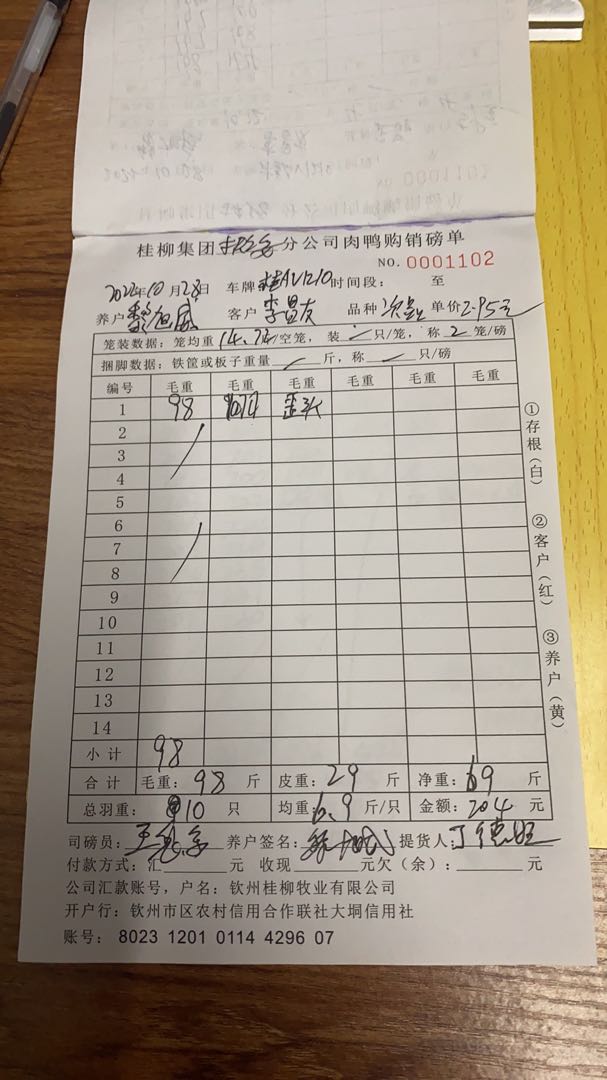 桂柳集团 分公司肉鸭购销磅单
NO. 0001102
2022年10月28日 车牌 桂AV1210 时间段： 至
养户 客户 李昌友 品种 单价2.95元
笼装数据：笼均重14.74/空笼，装 / 只/笼，称 2 笼/磅
捆脚数据：铁筐或板子重量 / 斤，称 / 只/磅
编号 毛重 毛重 毛重 毛重 毛重 毛重
1 98 歪头
2
3
4
5
6
7
8
9
10
11
12
13
14
小计 98
合计 毛重：98 斤 皮重：29 斤 净重：69 斤
总羽重： 10 只 均重：6.9 斤/只 金额：204 元
司磅员： 养户签名： 提货人：丁德旺
付款方式：汇 元 收现 元欠（余）： 元
公司汇款账号，户名：钦州桂柳牧业有限公司
开户行：钦州市区农村信用合作联社大垌信用社
账号：8023 1201 0114 4296 07
①存根（白）
②客户（红）
③养户（黄）